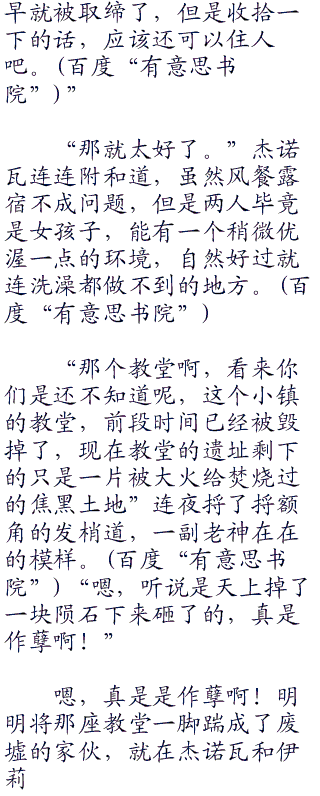 早就被取缔了，但是收拾一
下的话，应该还可以住人
吧。(百度“有意思书
院”)”
“那就太好了。”杰诺
瓦连连附和道，虽然风餐露
宿不成问题，但是两人毕竟
是女孩子，能有一个稍微优
渥一点的环境，自然好过就
连洗澡都做不到的地方。(百
度“有意思书院”)
“那个教堂啊，看来你
们是还不知道呢，这个小镇
的教堂，前段时间已经被毁
掉了，现在教堂的遗址剩下
的只是一片被大火给焚烧过
的焦黑土地”连夜捋了捋额
角的发梢道，一副老神在在
的模样。(百度“有意思书
院”)“嗯，听说是天上掉了
一块陨石下来砸了的，真是
作孽啊！”
嗯，真是是作孽啊！明
明将那座教堂一脚踹成了废
墟的家伙，就在杰诺瓦和伊
莉